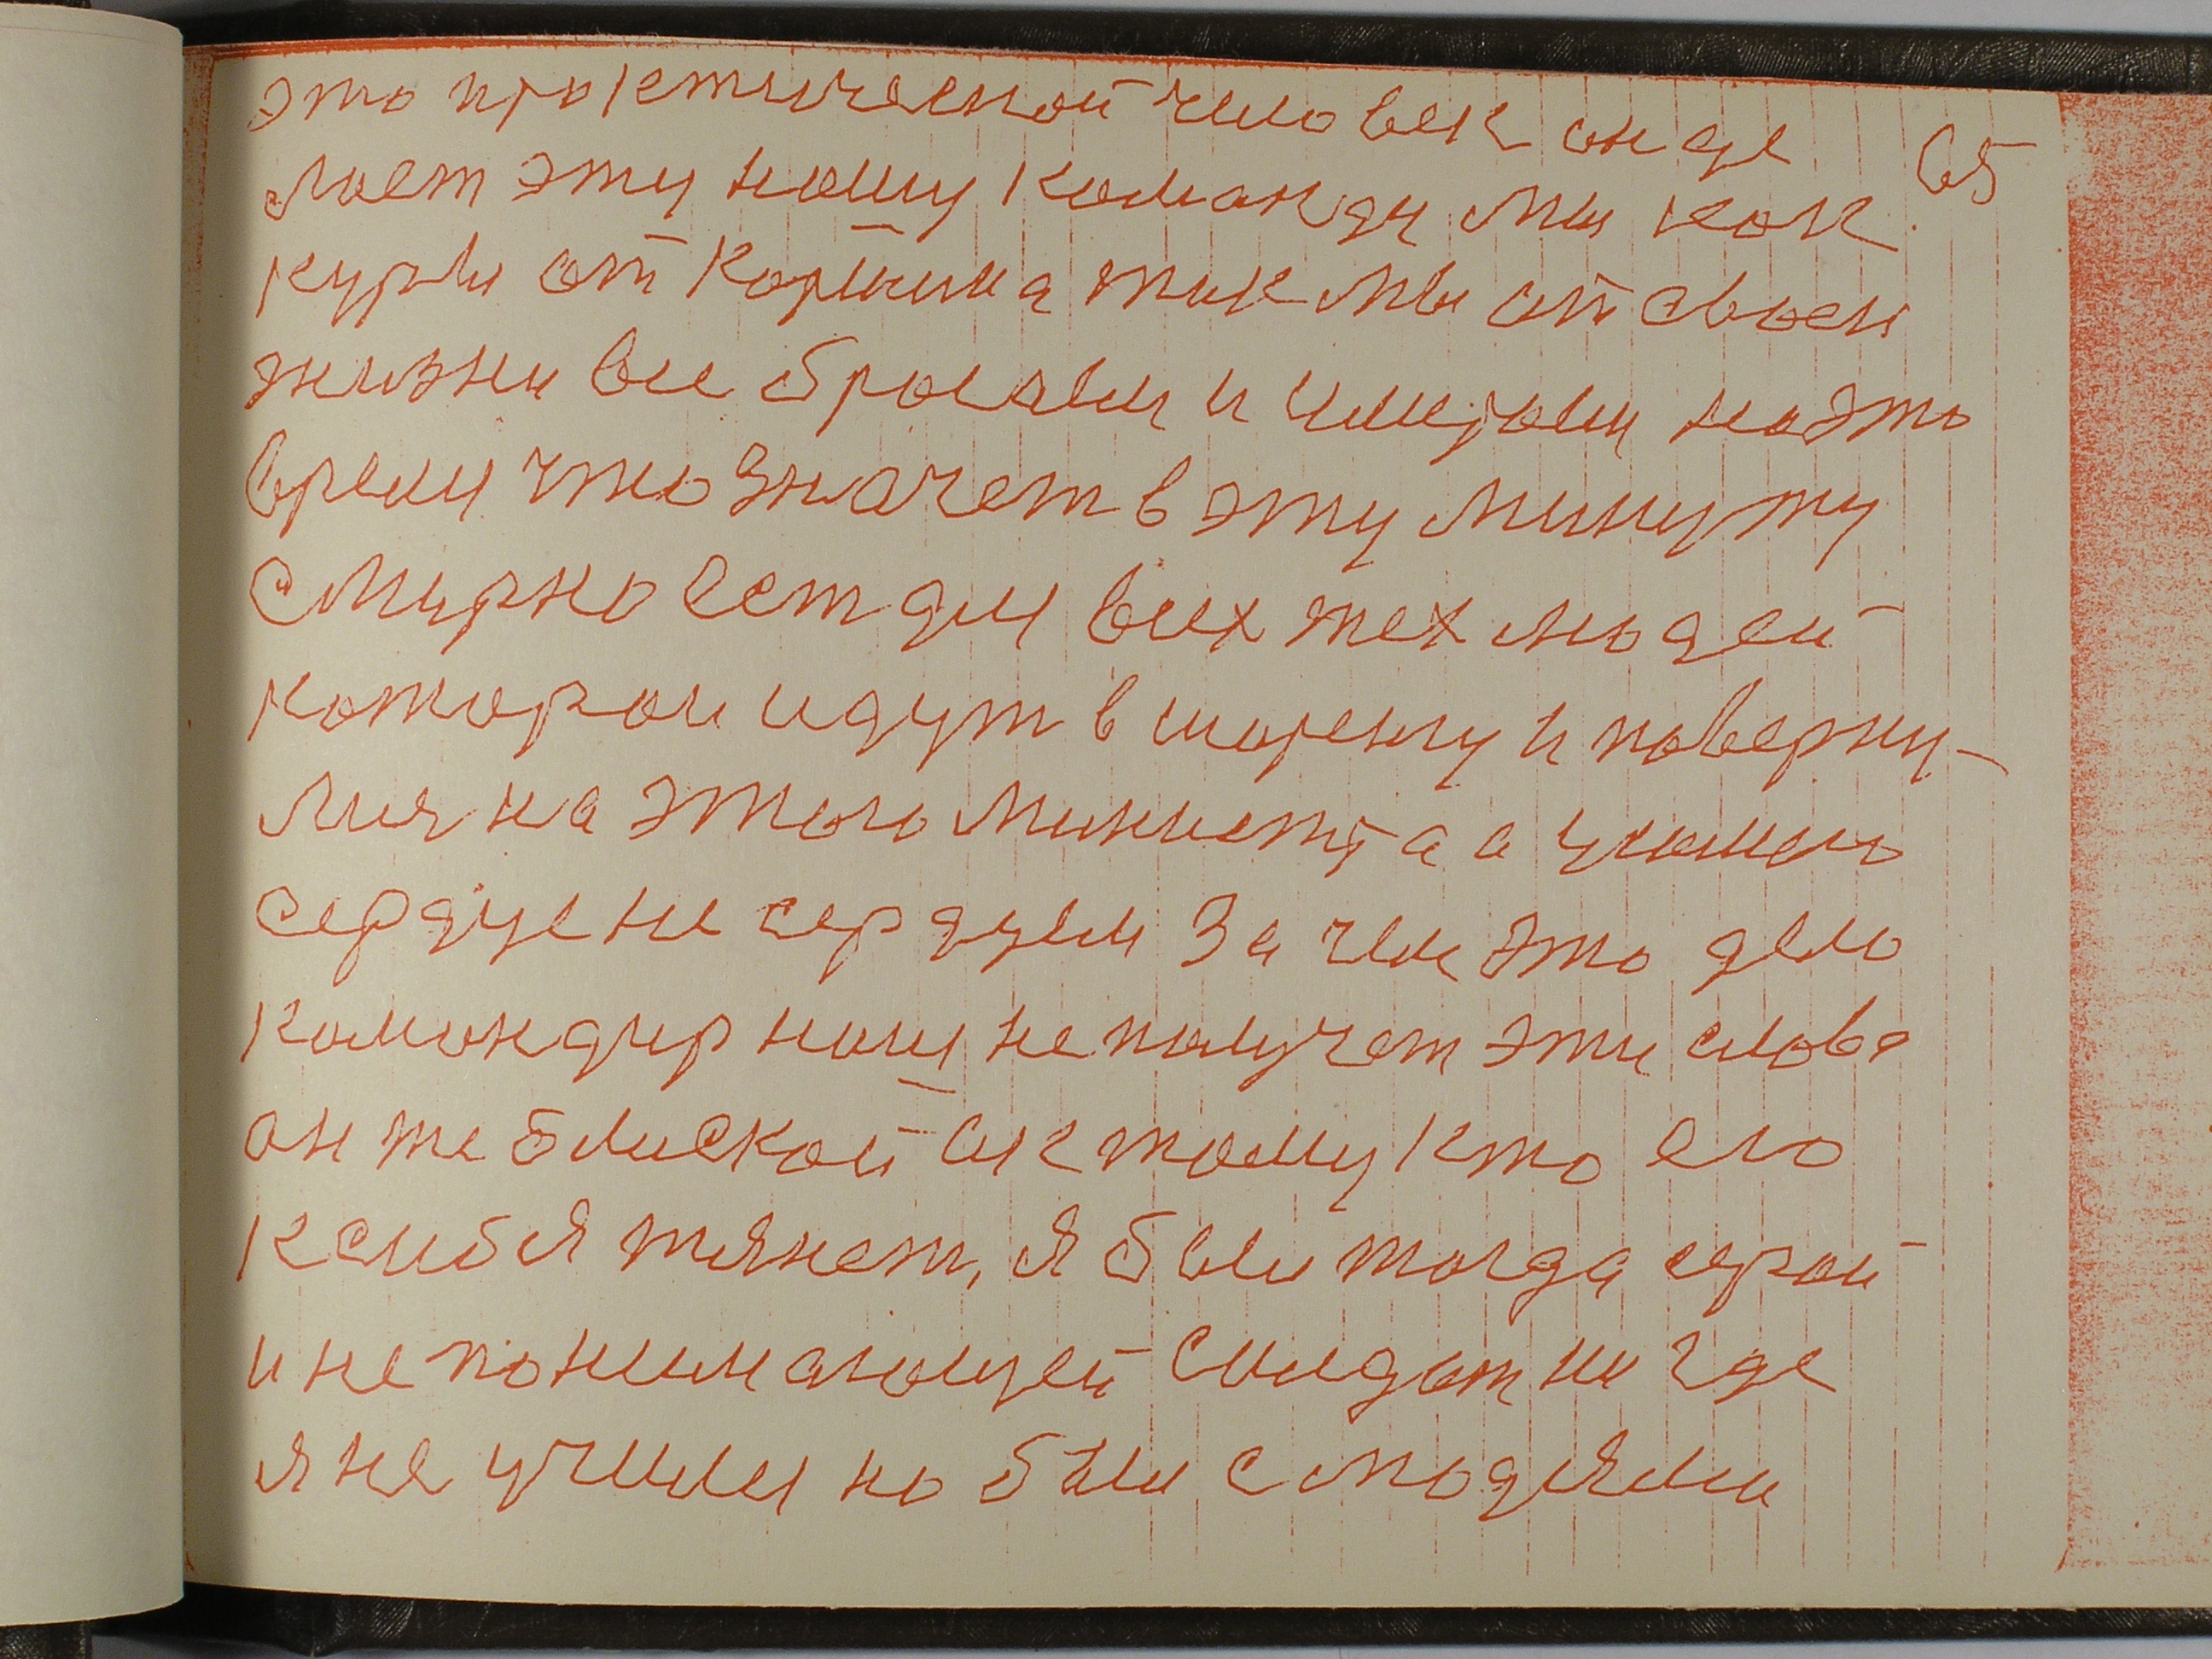 это проктической человек он де
лает эту нашу команду мы как
куры от коршина так мы от своеи
жизни все бросали и умирали на это
время что значет в эту минуту
смирно ест для всех тех людей
которои идут в шоренгу и поверну-
лися на этого министра а у нашего
сердце не сердцем За чем это дело
командир наш не получет эти слова
он же блиской ик тому кто его
к сибя тянет, я был тогда серой
и не понимающей салдат ни где
я не учился но был с людями
65